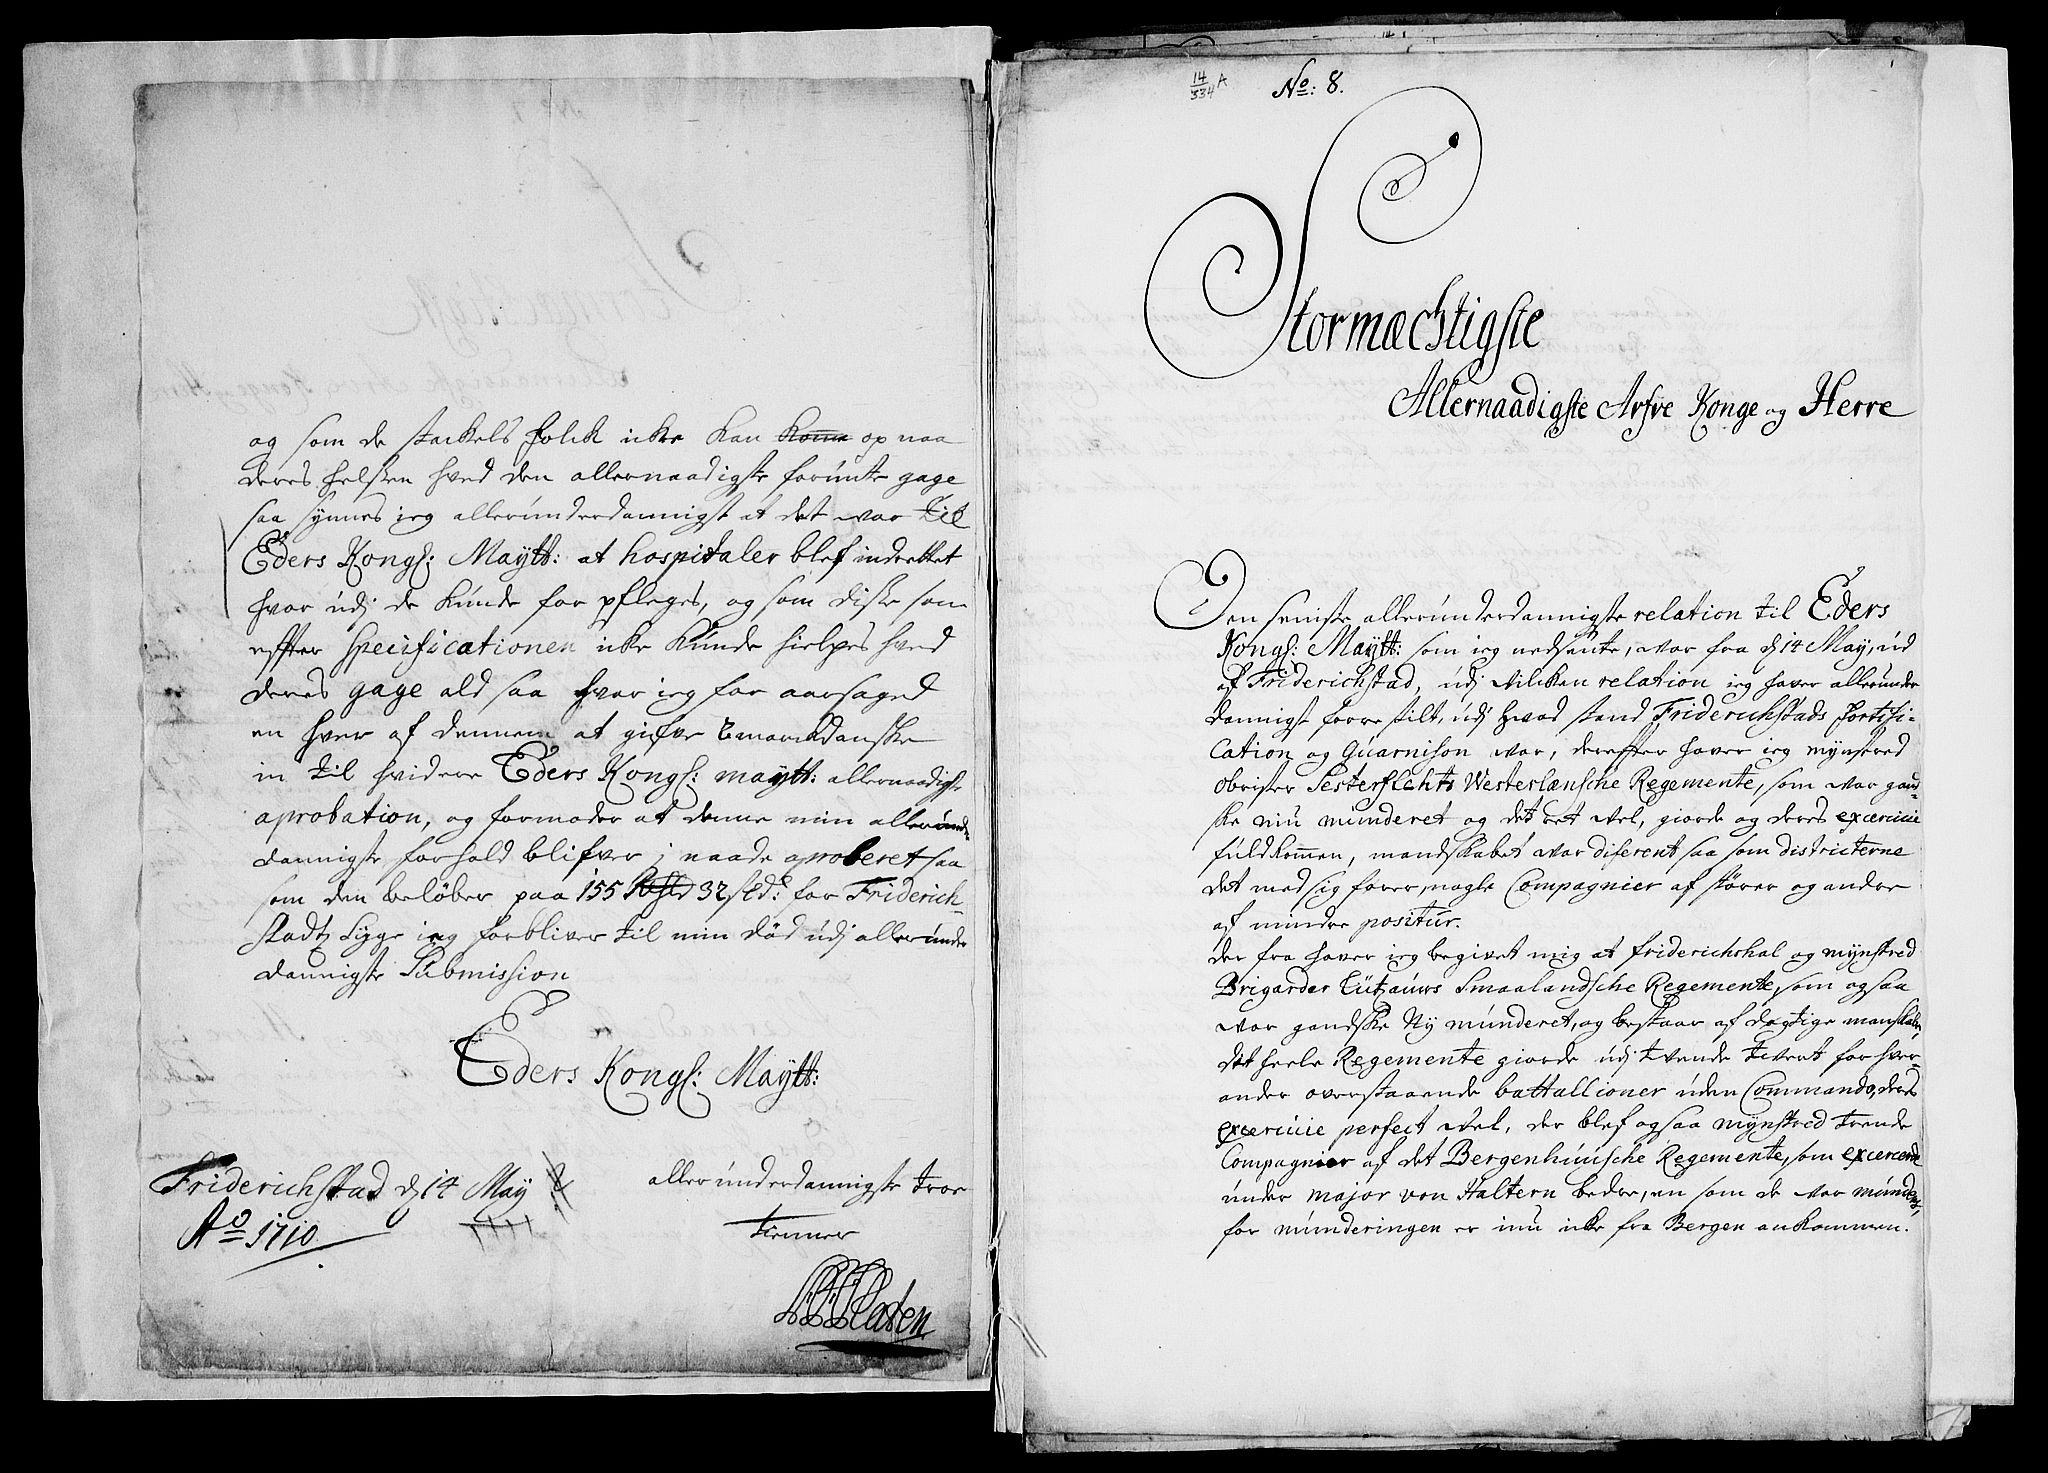 og som de stackels folck icke kan komme op naa
deres helsen hved den allernaadigste forunte gage
saa synnes ieg allerunderdannigst at det var til
Eders Kongl: Maytt: at hospitaler blef indrettet
hvor udj de kunde for pfleges, og som diske som
effter Specificationen icke kunde hielpes hved
deres gage ald saa hvar ieg for aarsaged
en hver af dennem at gifve 2 marck danske
in til hvidere Eders Kongl: maytt: allernaadigste
aprobation, og formoder at denne min allerunder
dannigste forhold blifver j naade aproberet saa
som den beløber paa 155 Rdr 32 sld: for Friderich-
stadt, ieg forbliver til min død udj allerunder
dannigste Submission
Eders Kongl: Maytt:
Friderichstad d 14 May
Ao 1710
allerunderdannigste troe
tienner
14/334 A
No: 8.
Stormæchtigste
Allernaadigste Arfve Konge og Herre
Den seniste allerunderdannigste relation til Eders
Kongl: Maytt: som ieg nedsente, var fra d 14 May, ud
af Friderichstad, udj vilcken relation ieg haver allerunder
dannigst forre stilt, udj hvad stand Friderichstads fortifi-
cation og Guarnison war, dereffter haver ieg mynstred
obrister Sesterflehts Westerlænsche Regemente, som var gand-
ske niu munderet og det ret vel, giorde og deres excercicie
fuldkommen, mandskabet var diferent saa som districterne
det med sig fører, nogle Compagnier af større og andre
af mindre positur.
der fra haver ieg begivet mig at friderichshal og mynstred
Brigarder Lützauws Smaalandsche Regemente, som og saa
var gandske Ny munderet, og bestaar af dögtige manskaber,
det heele Regemente giorde udj tvende tvert for hver
ander overstaaende battallioner uden Commando, deres
excercicie perfect vel, der blef og saa mynstred trende
Compagnier af det Bergenhuusche Regemente, som excercerede
under major von Haltern bedre, en som de var munderet,
for munderingen er inu icke fra Bergen ankommen.